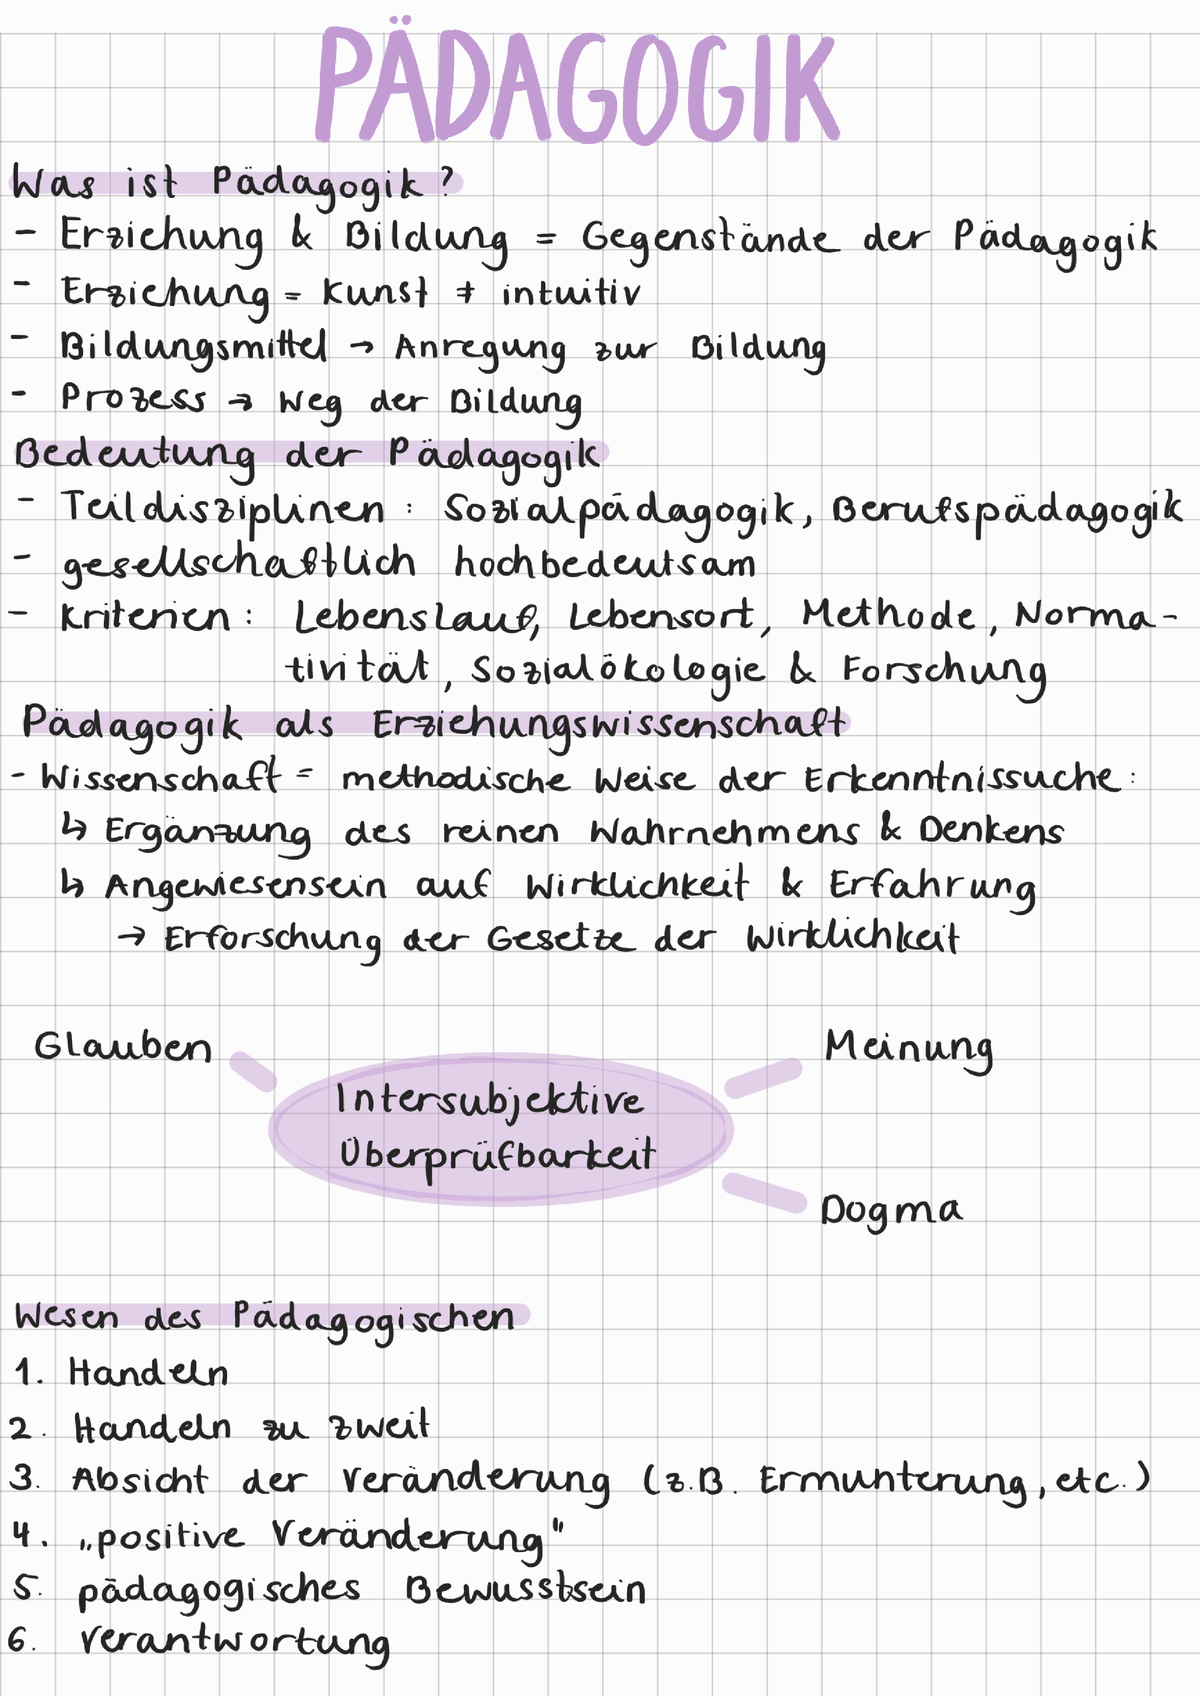 PÄDAGOGIK
Was ist Pädagogik?
- Erziehung & Bildung = Gegenstände der Pädagogik
- Erziehung = Kunst ≠ intuitiv
- Bildungsmittel → Anregung zur Bildung
- Prozess → Weg der Bildung
Bedeutung der Pädagogik
- Teildisziplinen: Sozialpädagogik, Berufspädagogik
- gesellschaftlich hochbedeutsam
- Kriterien: Lebenslauf, Lebensort, Methode, Norma-
tivität, Sozialökologie & Forschung
Pädagogik als Erziehungswissenschaft
- Wissenschaft = methodische Weise der Erkenntnissuche:
↳ Ergänzung des reinen Wahrnehmens & Denkens
↳ Angewiesensein auf Wirklichkeit & Erfahrung
→ Erforschung der Gesetze der Wirklichkeit
Glauben
Meinung
Intersubjektive
Überprüfbarkeit
Dogma
Wesen des Pädagogischen
1. Handeln
2. Handeln zu zweit
3. Absicht der Veränderung (z.B. Ermunterung, etc.)
4. „positive Veränderung"
5. pädagogisches Bewusstsein
6. Verantwortung